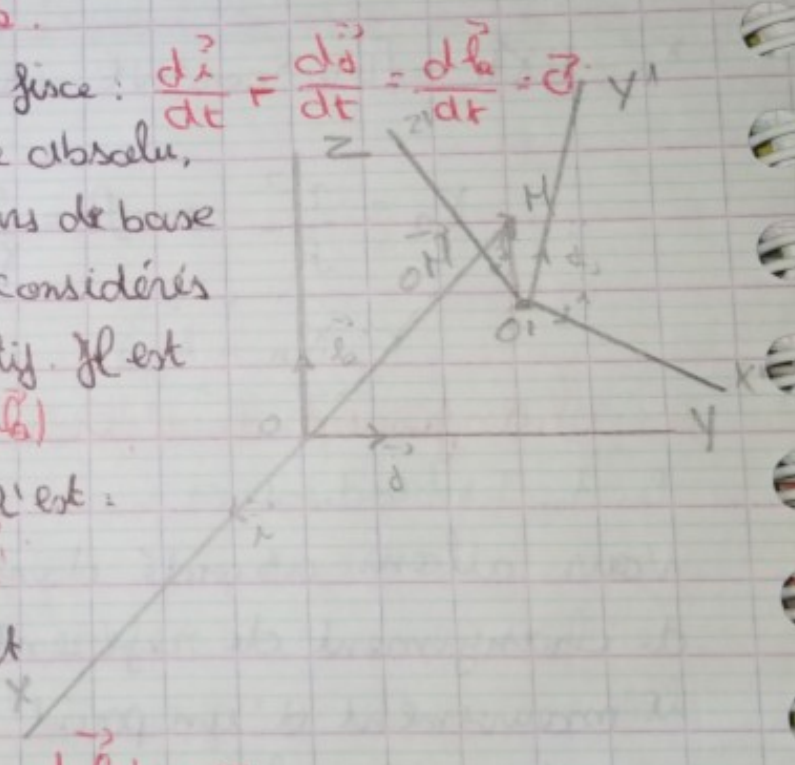 fisce : di⃗/dt = dj⃗/dt = dk⃗/dt = 0⃗
absolu,
ns de base
considérés
tif. Il est
k⃗)
c'est :
Z
Z'
Y'
M
OM⃗
O'
X'
Y
k⃗
O
j⃗
i
X